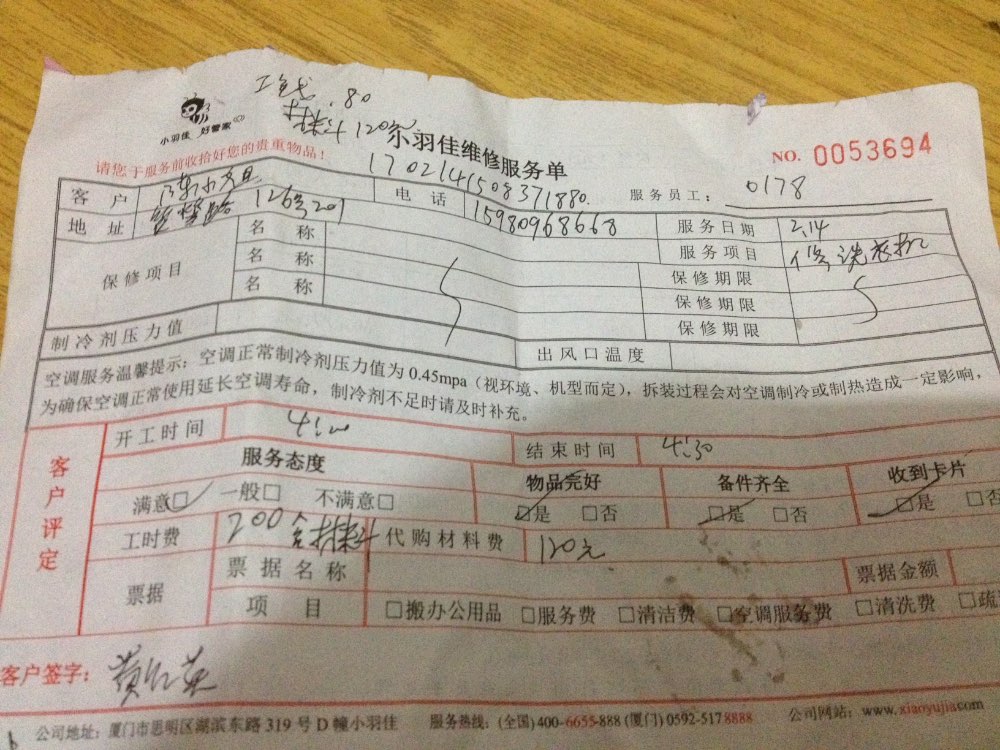 工钱.80
材料120元
小羽佳 好管家
小羽佳维修服务单
NO. 0053694
请您于服务前收拾好您的贵重物品!
1702141508371880.
服务员工: 0178
客户 电话 15980968668 服务日期 2.14
地址 126号201
服务项目 修洗衣机
保修项目 名称 保修期限
名称 保修期限
名称 保修期限
制冷剂压力值 出风口温度
空调服务温馨提示: 空调正常制冷剂压力值为0.45mpa (视环境、机型而定), 拆装过程会对空调制冷或制热造成一定影响,
为确保空调正常使用延长空调寿命, 制冷剂不足时请及时补充。
客户评定
开工时间 结束时间 4:30
服务态度 物品完好 备件齐全 收到卡片
满意□ 一般□ 不满意□ □是 □否 □是 □否 □是 □否
工时费 200含材料 代购材料费 120元
票据 票据名称 票据金额
项目 □搬办公用品 □服务费 □清洁费 □空调服务费 □清洗费 □疏
客户签字:
公司地址: 厦门市思明区湖滨东路319号D幢小羽佳 服务热线: (全国)400-6655-888 (厦门) 0592-5178888 公司网站: www.xiaoyujia.com